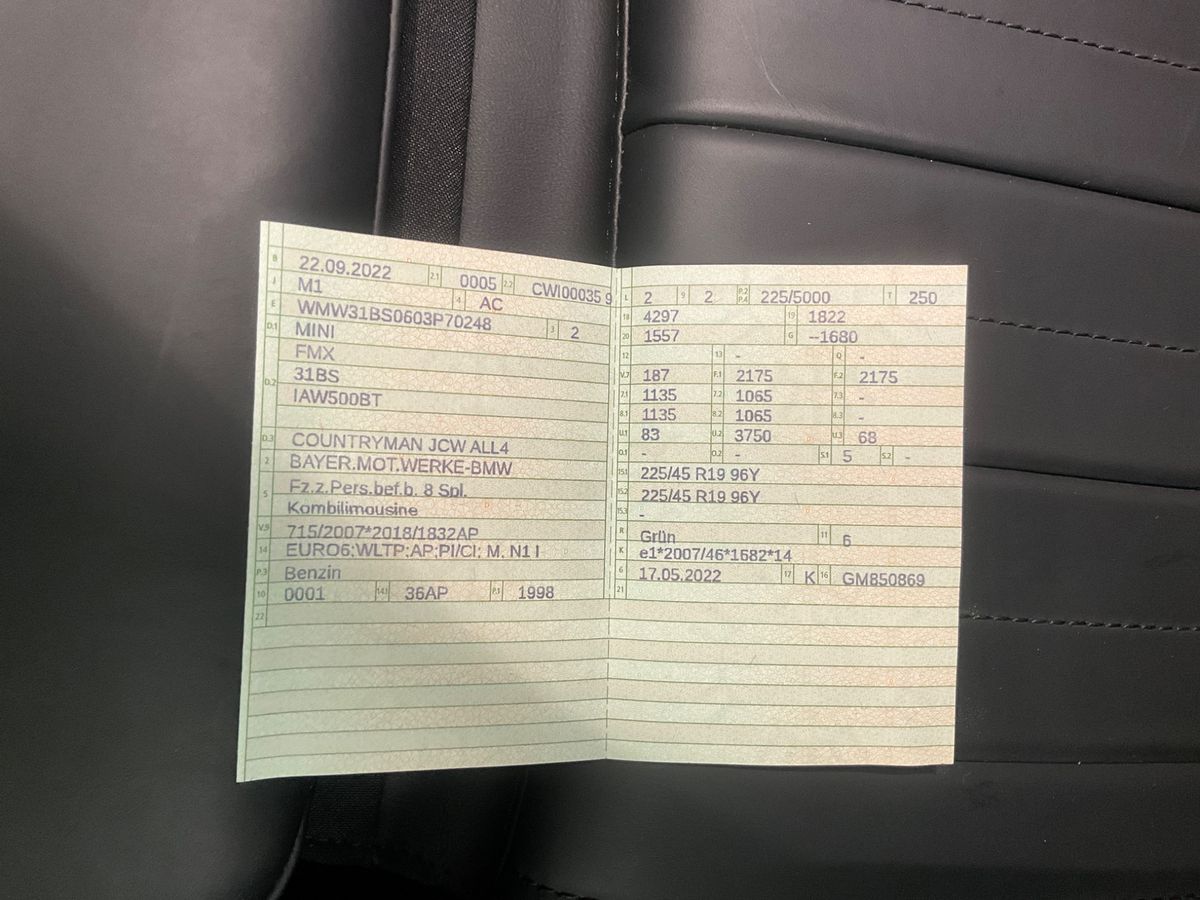 B 22.09.2022 2.1 0005 2.2 CWI00035 9
J M1 4 AC
E WMW31BS0603P70248 3 2
D.1 MINI
FMX
D.2 31BS
IAW500BT
D.3 COUNTRYMAN JCW ALL4
2 BAYER.MOT.WERKE-BMW
5 Fz.z.Pers.bef.b. 8 Spl.
Kombilimousine
V.9 715/2007*2018/1832AP
14 EURO6;WLTP;AP;PI/CI; M, N1 I
P.3 Benzin
10 0001 14.1 36AP P.1 1998
22
L 2 9 2 P.2 P.4 225/5000 T 250
18 4297 19 1822
20 1557 G --1680
12 13 - Q -
V.7 187 F.1 2175 F.2 2175
7.1 1135 7.2 1065 7.3 -
8.1 1135 8.2 1065 8.3 -
U.1 83 U.2 3750 U.3 68
O.1 - O.2 - S.1 5 S.2 -
15.1 225/45 R19 96Y
15.2 225/45 R19 96Y
15.3 -
R Grün 11 6
K e1*2007/46*1682*14
6 17.05.2022 17 K 16 GM850869
21